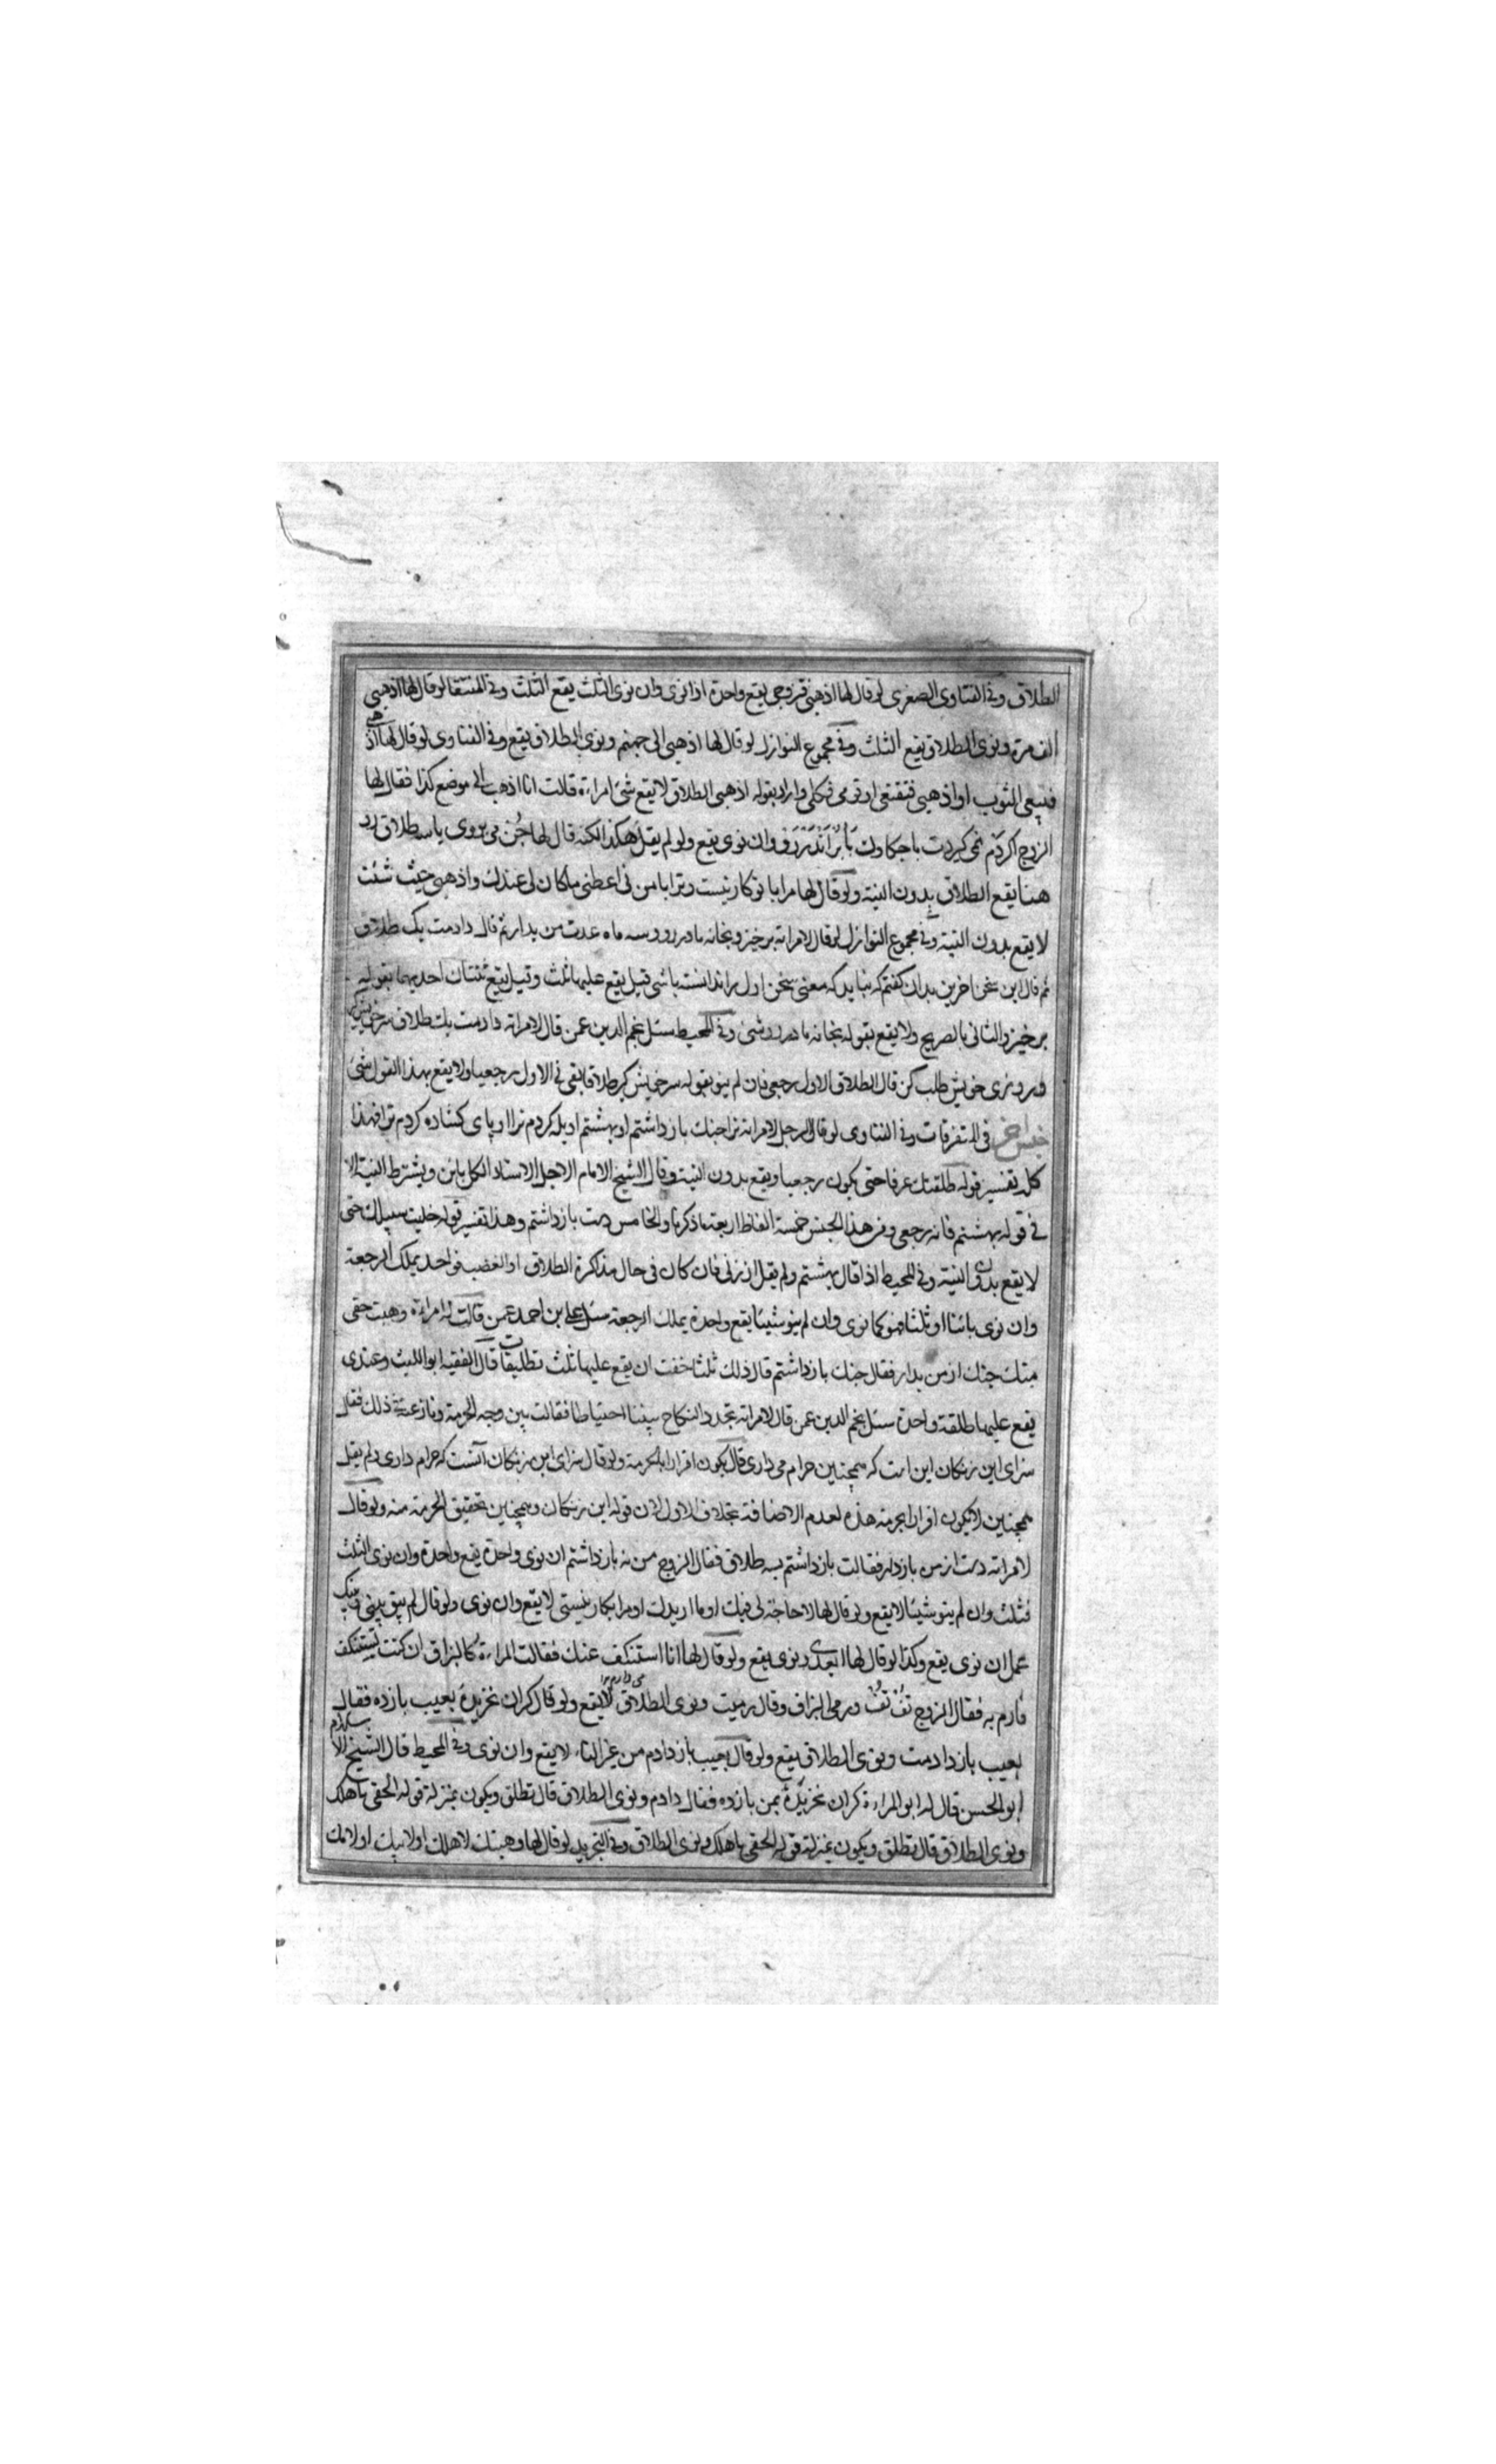 الطلاق وفى الفتاوى الصغرى لو قال لها اذهبى فتزوجى يقع واحدة اذا نوى وان نوى الثلث يقع الثلث وفى المنتقا لو قال لها اذهبى
الف مرة ونوى الطلاق يقع الثلث وفى مجموع النوازل لو قال لها اذهبى الى جهنم ونوى الطلاق يقع وفى الفتاوى لو قال لها اذهبى
فبيعى الثوب او اذهبى فتقنعى او قومى فكلى واراد بقوله اذهبى الطلاق لا يقع شئ امراءة قالت انا اذهب الى موضع كذا فقال لها
الزوج وان نوى يقع ولو لم يقل هكذا لكنه قال لها مى روى با سه طلاق رو
هنا يقع الطلاق بدون النية ولو قال لها مرا با تو كار نيست وترا با من نى اعطنى ما كان لى عندك واذهبى حيث شئت
لا يقع بدون النية وفى مجموع النوازل لو قال لامراته برخيز وبخانه مادر رو وسه ماه عدت من بدار ثم قال دادمت يك طلاق
ثم قال اين سخن اخرين بدان كفتم كه نبايد كه معنى سخن اول را ندانسته باشى قيل يقع عليها ثلث وقيل يقع ثنتان احديهما بقوله
برخيز والثانى بالصريح ولا يقع بقوله بخانه مادر رو شئ وفى المحيط سئل نجم الدين عمن قال لامراته دادمت يك طلاق سر خويش كير
وروزى خويش طلب كن قال الطلاق الاول رجعى فان لم ينو بقوله سر خويش كير طلاقا بقى فى الاول رجعيا ولا يقع بهذا القول شئ
جنس اخر فى المتفرقات وفى الفتاوى لو قال الرجل لامراته ترا جنك بازداشتم او بهشتم او يله كردم ترا او پاى كشاده كردم ترا فهذا
كله تفسير قوله طلقتك عرفا حتى يكون رجعيا ويقع بدون النية وقال الشيخ الامام الاجل الاستاد الكل باين ويشترط النية الا
فى قوله بهشتم فانه رجعى ومن هذا الجنس خمسة الفاظ اربعة ما ذكرنا والخامس دست بازداشتم وهذا تفسير قوله خليت سبيلك حتى
لا يقع بدون النية وفى المحيط اذا قال بهشتم ولم يقل از زنى فان كان فى حال مذاكرة الطلاق او الغضب فواحد يملك الرجعة
وان نوى بائنا او ثلثا فهو كما نوى وان لم ينو شيئا يقع واحدة يملك الرجعة سئل على بن احمد عمن قالت له امراءة وهبت حقى
منك جنك از من بدار فقال جنك بازداشتم قال ذلك ثلثا خفت ان يقع عليها ثلث تطليقات قال الفقيه ابو الليث وعندى
يقع عليها طلقة واحدة سئل نجم الدين عمن قال لامراته تجدد النكاح بيننا احتياطا فقالت بين وجه الحرمة ونازعته ذلك فقال
سزاى اين زنكان اين است كه همچنين حرام مى دارى قال يكون اقرارا بالحرمة ولو قال سزاى اين زنكان آنست كه حرام دارى ولم يقل
همچنين لا يكون اقرارا بحرمة هذه لعدم الاضافة بخلاف الاول لان قوله اين زنكان وهمچنين تحقيق الحرمة منه ولو قال
لامراته دست از من بازدار فقالت بازداشتم بسه طلاق فقال الزوج من نه بازداشتم ان نوى واحدة يقع واحدة وان نوى الثلث
فثلث وان لم ينو شيئا لا يقع ولو قال لها لا حاجة لى فيك او ما اريدك او مرا بكار نيستى لا يقع وان نوى ولو قال لم يبق بينى وبينك
عمل ان نوى يقع وكذا لو قال لها ابعدى ونوى يقع ولو قال لها انا استنكف عنك فقالت المراءة كالبزاق ان كنت تستنكف
فارم به فقال الزوج تف تف ورمى البزاق وقال رميت ونوى الطلاق لا يقع ولو قال كران خريده بعيب بازده فقال
بعيب بازدادمت ونوى الطلاق يقع ولو قال بعيب بازدادم من غير التاء لا يقع وان نوى وفى المحيط قال الشيخ الاسلام
ابو الحسن قال له ابو المراءة كران خريده بمن بازده فقال دادم ونوى الطلاق قال تطلق ويكون بمنزلة قوله الحقى باهلك
ونوى الطلاق قال تطلق ويكون بمنزلة قوله الحقى باهلك ونوى الطلاق وفى التجريد لو قال لها وهبتك لاهلك او لابيك او لامك